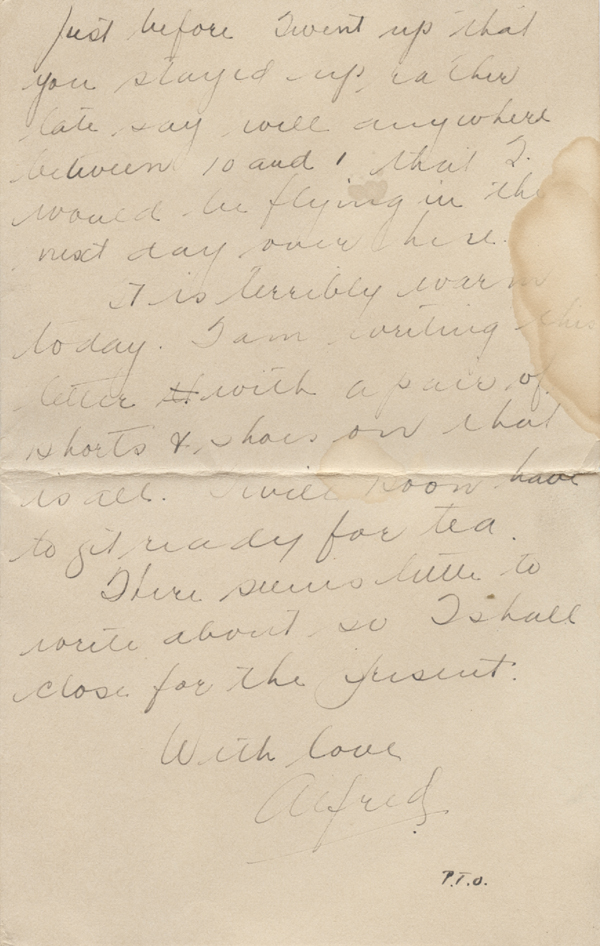 Just before I went up that
you stayed up rather
late say well anywhere
between 10 and 1 that I
would be flying in the
next day over here.
It is terribly warm
today. I am writing this
letter with a pair of
shorts & shoes on that
is all. I will soon have
to get ready for tea.
There seems little to
write about so I shall
close for the present.
With love
Alfred
P.T.O.